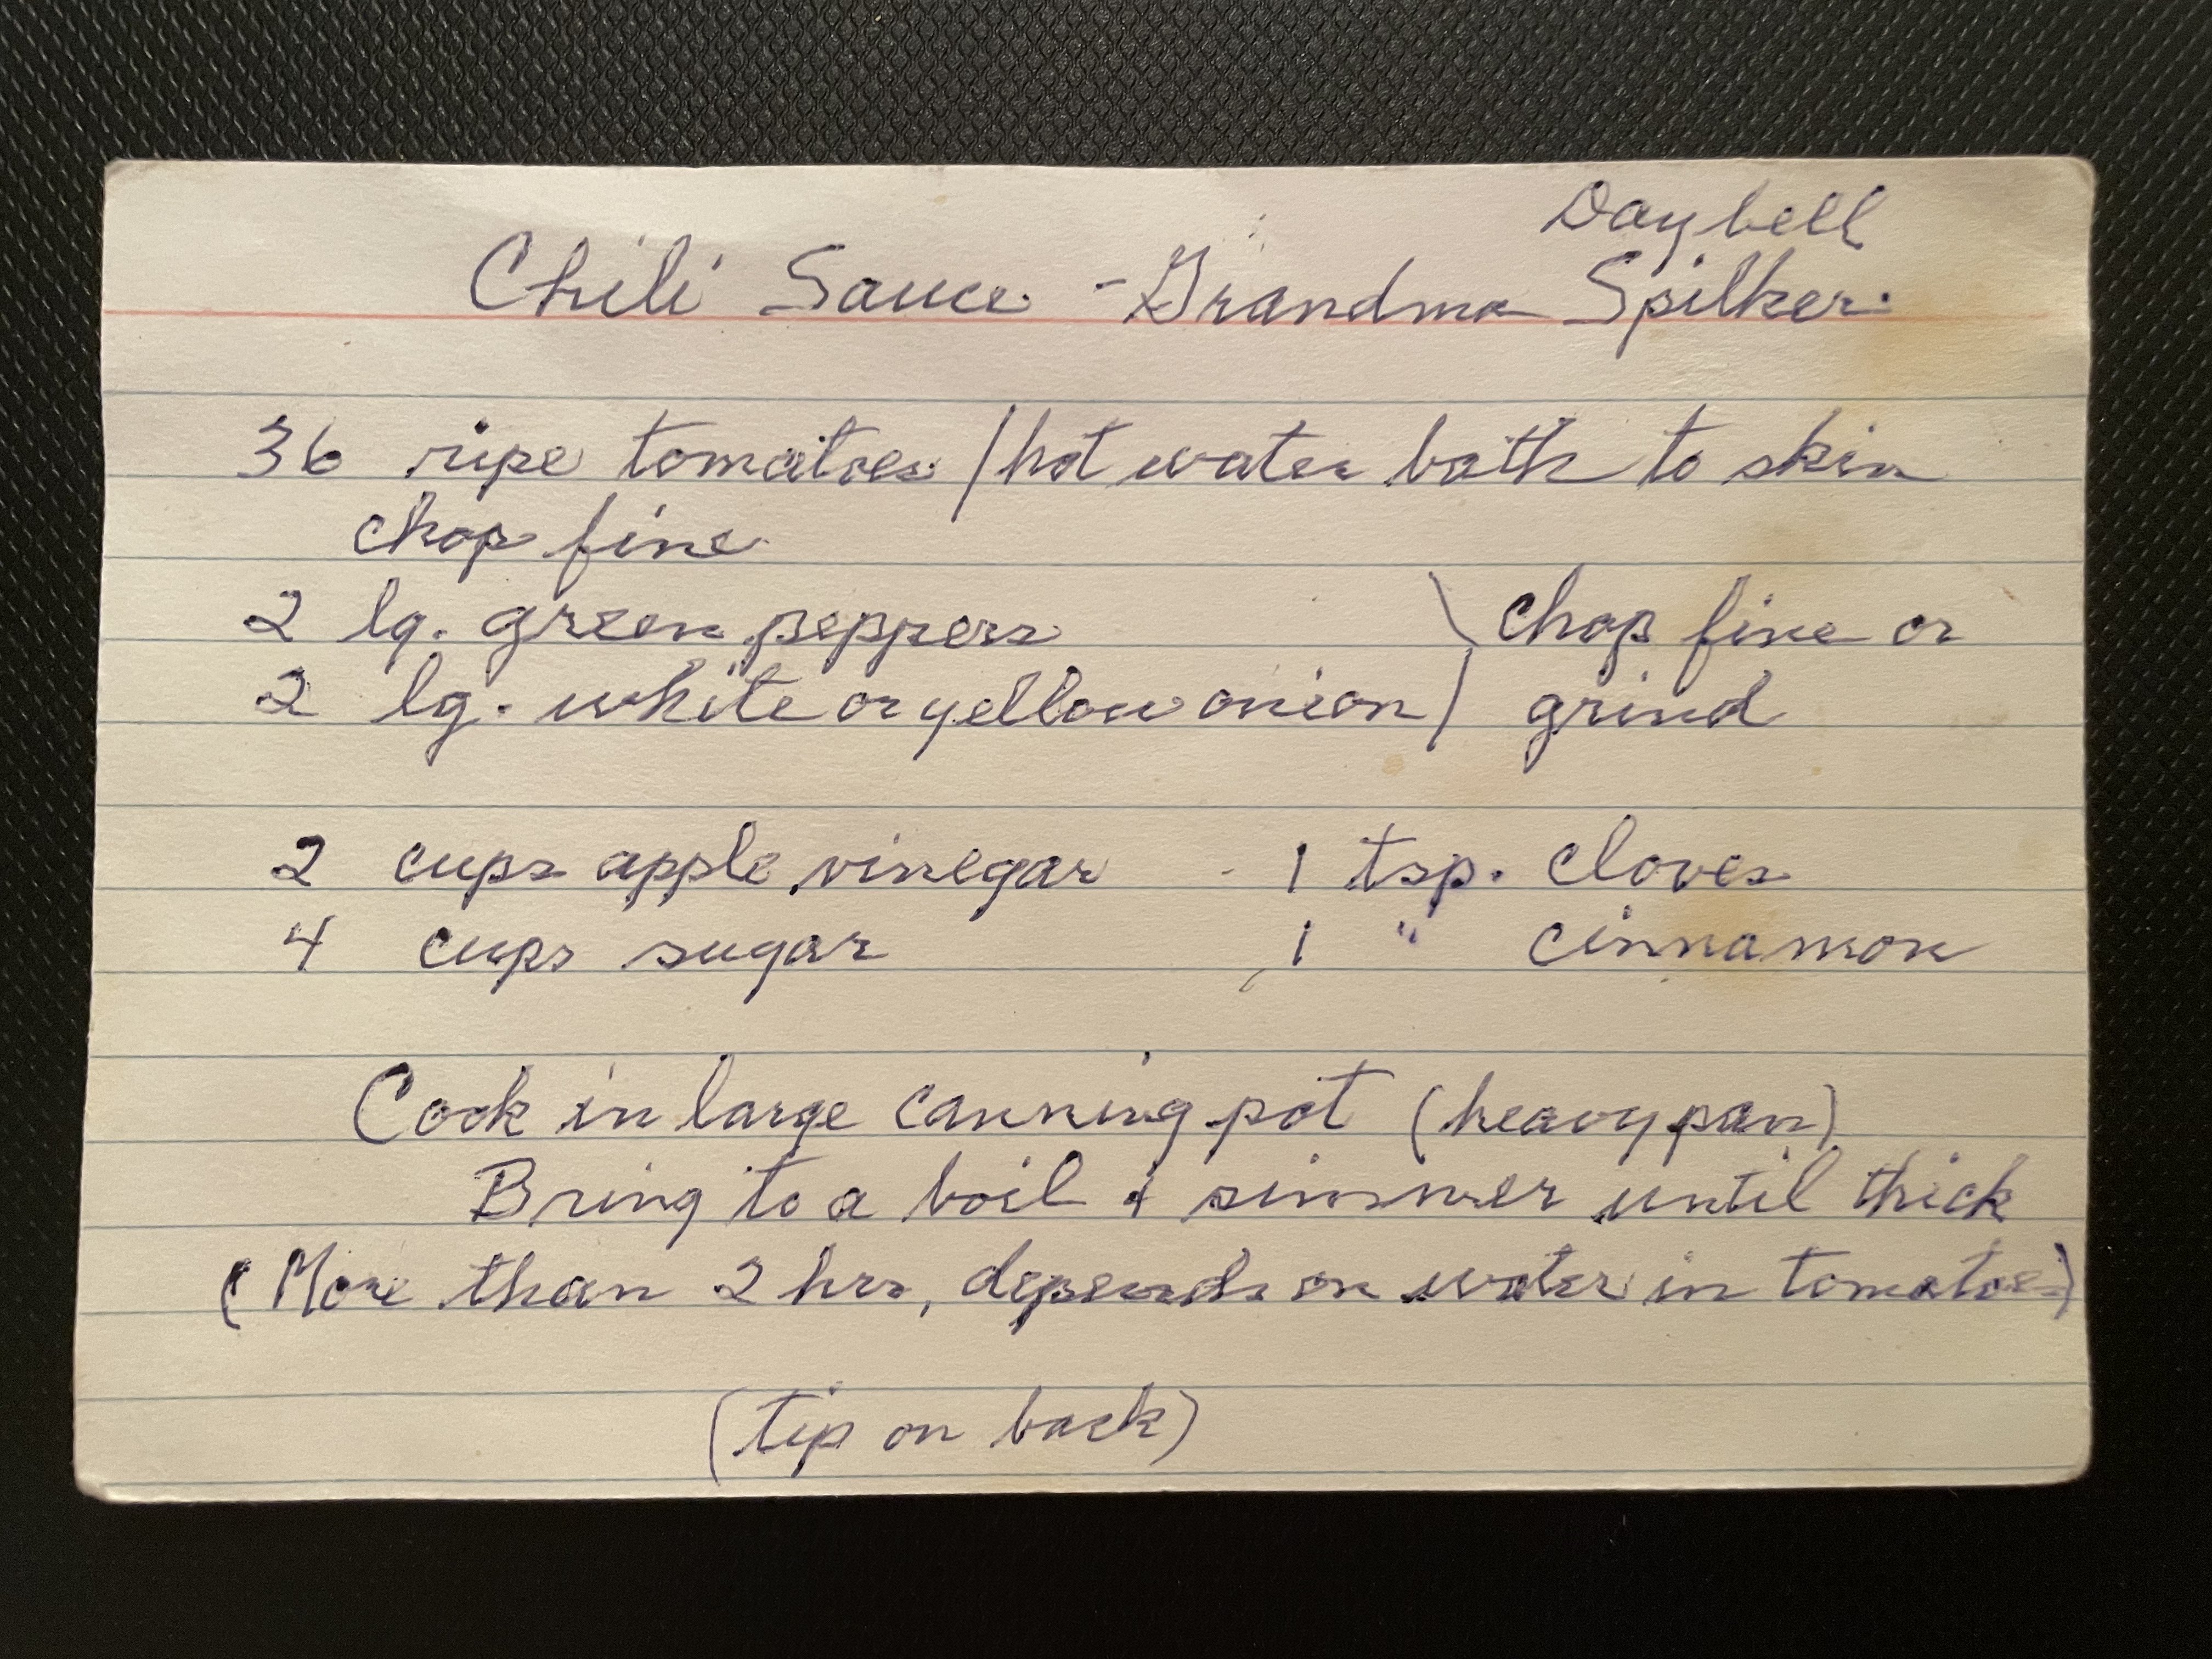 Daybell
Chili Sauce - Grandma Spilker
36 ripe tomatoes / hot water bath to skin
chop fine
2 lg. green peppers \ chop fine or
2 lg. white or yellow onion / grind
2 cups apple vinegar - 1 tsp. cloves
4 cups sugar 1 " cinnamon
Cook in large canning pot (heavy pan)
Bring to a boil & simmer until thick
(More than 2 hrs, depends on water in tomatoes)
(tip on back)